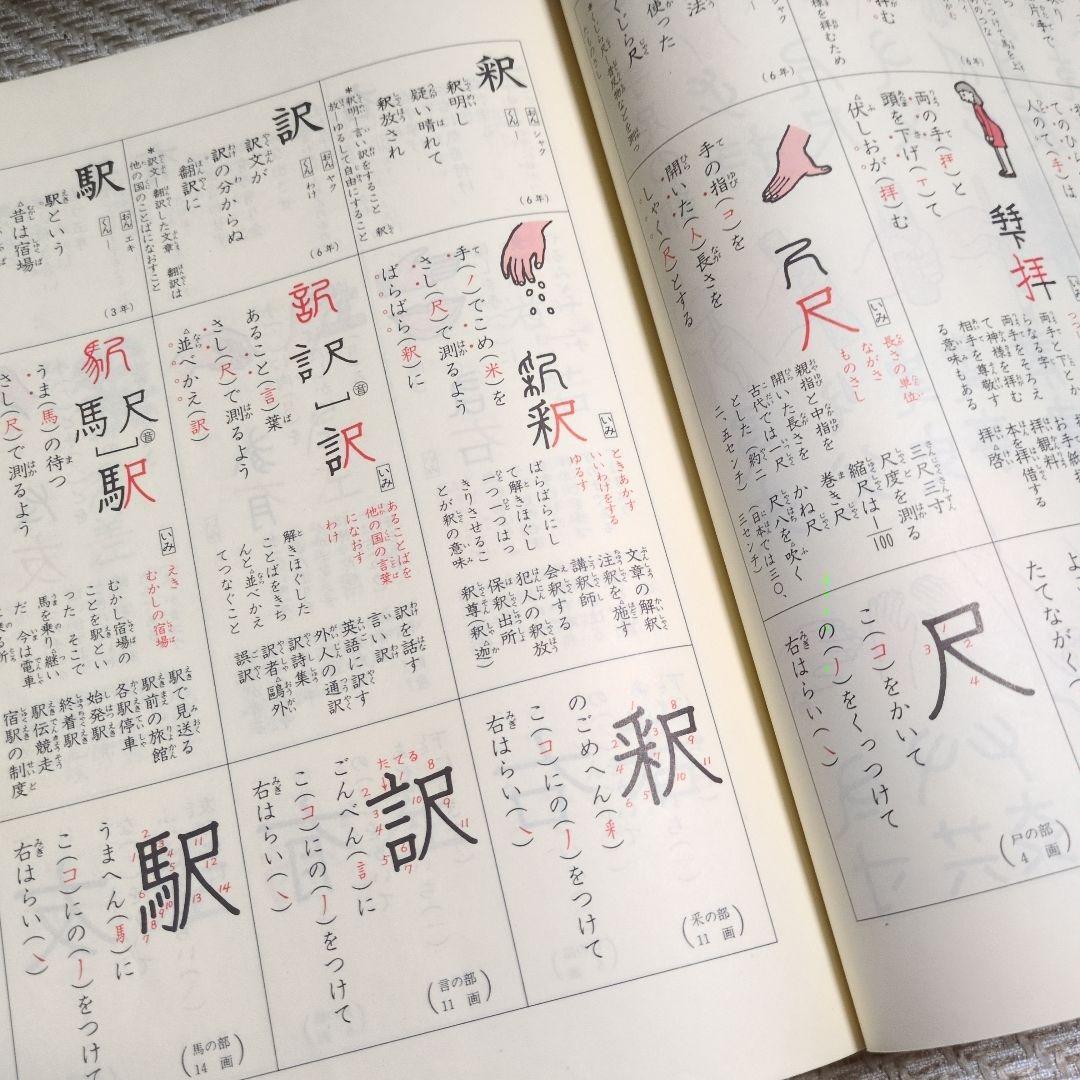 法
使った
くじら尺
(6年)
様を拝むため
(6年)
両の手(拝)と
頭を下げ(丅)て
伏しおが(拝)む
てのひら
人のて、(手)は
拝
いみ
両手と下と
らなる字
両手をそろえ
神様を拝む
て神様を尊敬す
相手を尊敬す
る意味もある
拝観料
本を拝借する
拝啓
手の指(コ)を
開いた(人)長さを
しゃく(尺)とする
尺
いみ
長さの単位
ながさ
ものさし
親指と中指を
開いた長さを
とした
古代では一尺
(約二
二、五センチ)
(日本では三〇、
三センチ)
三尺三寸
尺度を測る
縮尺は1/100
巻き尺
かね尺
尺八を吹く
尺
1 2 3 4
こ(コ)をかいて
の(ノ)をくっつけて
右はらい(㇏)
(尸の部
4画)
たてながく
釈
おん シャク
くん ー
釈明し
疑い晴れて
釈放され
*釈明―言い訳をすること 釈
放 ゆるして自由にすること
(6年)
手(ノ)でこめ(米)を
さし(尺)で測るよう
ばらばら(釈)に
釈
いみ
ときあかす
いいわけをする
ゆるす
ばらばらにし
て解きほぐし
一つ一つはっ
きりさせるこ
とが釈の意味
文章の解釈
注釈を施す
講釈師
会釈する
犯人の釈放
保釈出所
釈尊(釈迦)
釈
のごめへん(釆)
こ(コ)にの(ノ)をつけて
右はらい(㇏)
(釆の部
11画)
訳
おん ヤク
くん わけ
訳文が
訳の分からぬ
翻訳に
*訳文 翻訳した文章 翻訳は
他の国のことばになおすこと
(6年)
あること(言)葉
さし(尺)で測るよう
並べかえ(訳)
言尺音
訳
いみ
あることばを
他の国の言葉
になおす
わけ
解きほぐした
ことばをきち
んと並べかえ
てつなぐこと
訳を話す
言い訳
英語に訳す
外人の通訳
訳詩集
訳者鷗外
誤訳
訳
たてる
ごんべん(言)に
こ(コ)にの(ノ)をつけて
右はらい(㇏)
(言の部
11画)
駅
おん エキ
くん ー
駅という
昔は宿場
(3年)
うま(馬)の待つ
さし(尺)で測るよう
馬尺音
駅
いみ
えき
むかしの宿場
むかし宿場の
ことを駅とい
った そこで
馬を乗り継い
だ 今は電車
駅で見送る
駅前の旅館
各駅停車
始発駅
終着駅
駅伝競走
宿駅の制度
駅
うまへん(馬)に
こ(コ)にの(ノ)をつけて
右はらい(㇏)
(馬の部
14画)